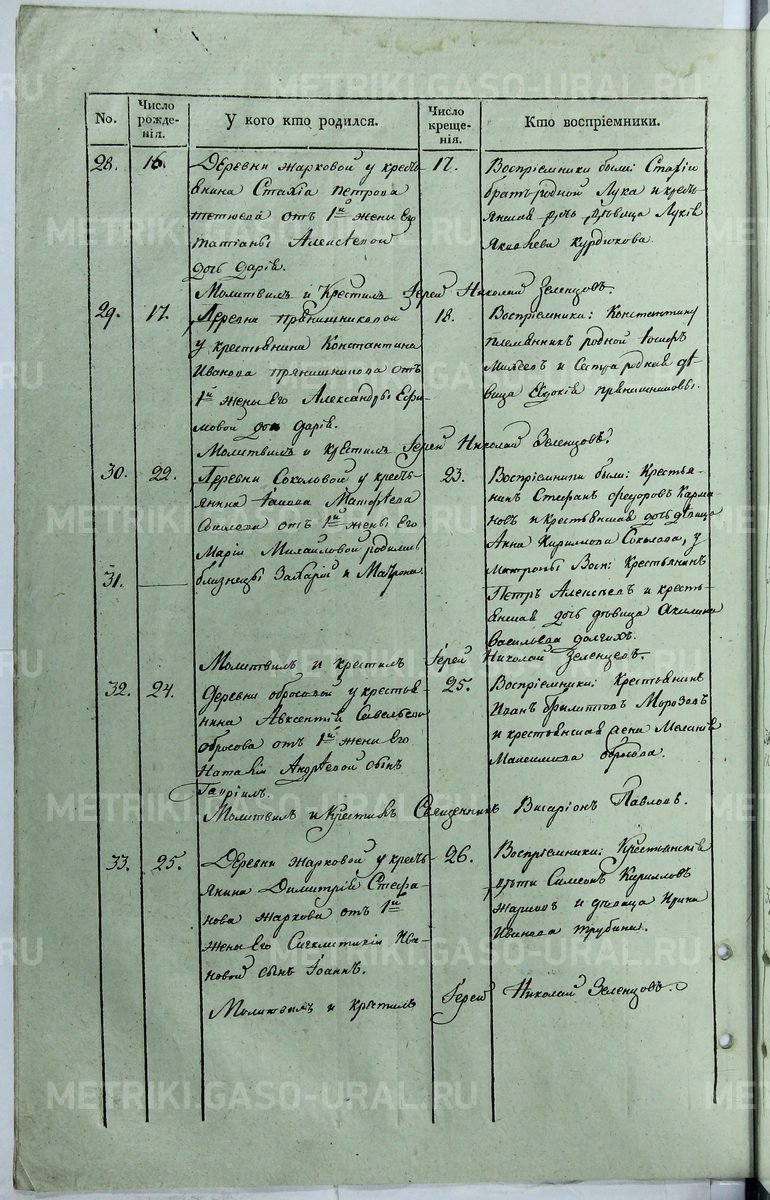 No.
Число рожде-
нія.
У кого кто родился.
Число креще-
нія.
Кто воспріемники.
28.
16.
Деревни Жарковой у кресть-
янина Стахіа Петрова
отъ 1й жены Его
Татіаны Алексѣевой
дочь Дарія.
17.
Воспріемники были: Стахіи
братъ родной Лука и кресть-
янская дѣвица Лукія
Яковлева Курдюкова.
Молитвилъ и Крестилъ Іерей Николай Зеленцовъ.
29.
17.
Деревни Прянишниковой
у крестьянина Константина
Иванова Прянишникова отъ
1й жены Его Александры Ефи-
мовой дочь Дарія.
18.
Воспріемники: Константину
племянникъ родной Іосифъ
и Сестра родная дѣ-
вица Евдокія Прянишниковы.
Молитвилъ и крестилъ Іерей Николай Зеленцовъ.
30.
22.
Деревни Соколовой у кресть-
янина Іакова Матфѣева
Соколова отъ 1й жены Его
Маріи Михайловой родились
31.
близнецы Захарій и Матрона
23.
Воспріемники были: Крестья-
нинъ Стефанъ Федоровъ Карма-
новъ и крестьянская дочь дѣвица
Анна Кириллова Соколова, у
Матроны Восп: Крестьянинъ
Петръ Алексѣевъ и кресть-
янская дочь дѣвица Акилина
Васильева Долгихъ.
Молитвилъ и крестилъ Іерей Николай Зеленцовъ.
32.
24.
Деревни Обросовой у крестья-
нина Авксентій Савельева
Обросова отъ 1й жены Его
Наталіи Андрѣевой сынъ
Гавріилъ.
25.
Воспріемники: Крестьянинъ
Иванъ Филиповъ Морозовъ
и крестьянская жена Меланія
Максимова Обросова.
Молитвилъ и Крестилъ Священникъ Висаріонъ Павловъ.
33.
25.
Деревни Жарковой у кресть-
янина Димитрій Стефа-
нова Жаркова отъ 1й
жены Его Сигклитикіи Ива-
новой сынъ Іоаннъ.
26.
Воспріемники: Крестьянскія
дѣти Симеонъ Кирилловъ
Жарковъ и дѣвица Ирина
Иванова Трубины.
Молитвилъ и крестилъ Іерей Николай Зеленцовъ.
METRIKI.GASO-URAL.RU